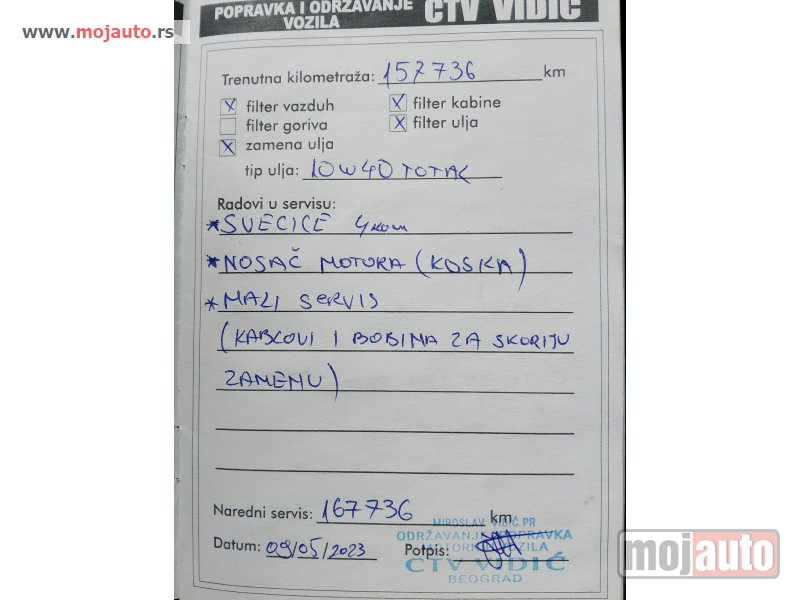 POPRAVKA I ODRŽAVANJE CTV VIDIĆ
VOZILA
www.mojauto.rs
Trenutna kilometraža: 157736 km
X filter vazduh X filter kabine
filter goriva X filter ulja
X zamena ulja
tip ulja: 10W40 TOTAL
Radovi u servisu:
*SVEĆICE 4 kom
*NOSAČ MOTORA (KOSKA)
*MALI SERVIS
(KABLOVI I BOBINA ZA SKORIJU
ZAMENU)
Naredni servis: 167736 km
MIROSLAV VIDIĆ PR
ODRŽAVANJE I POPRAVKA
MOTORNIH VOZILA
Datum: 09/05/2023 Potpis:
CTV VIDIĆ
BEOGRAD
mojauto